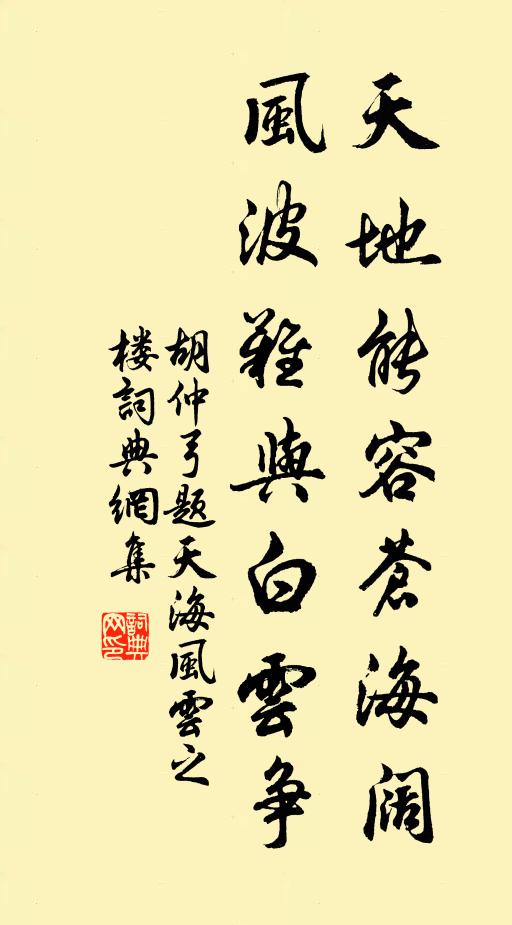 天地能容蒼海阔
風波難與白雲争
胡仲弓题天海風雲之
楼詞典網集
詞典网印